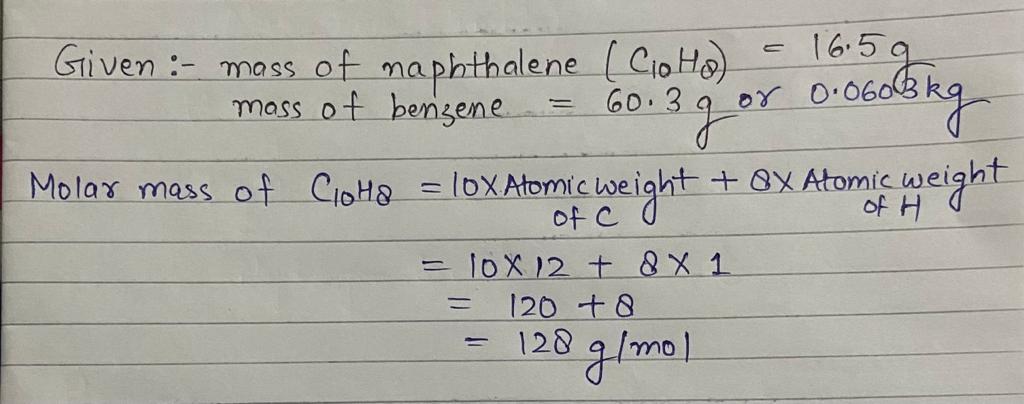 Given :- mass of naphthalene (C10H8) = 16.5g
mass of benzene = 60.3 g or 0.0603kg
Molar mass of C10H8 = 10X Atomic weight of C + 8X Atomic weight of H
= 10 X 12 + 8 X 1
= 120 + 8
= 128 g/mol